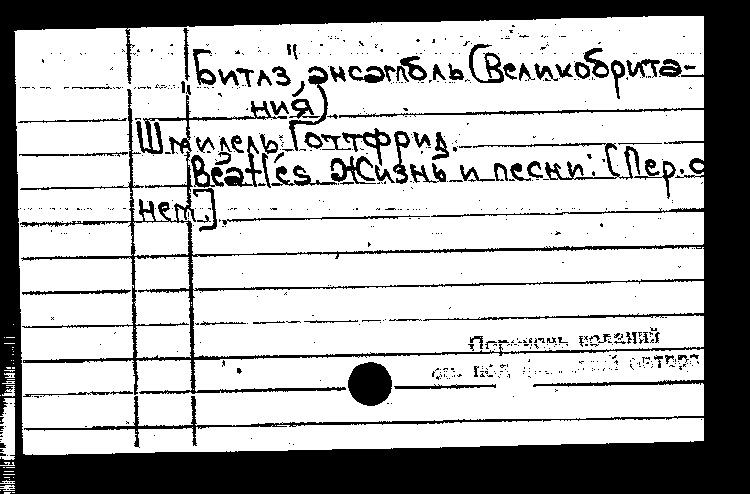 "Битлз", ансамбль (Великобрита-
ния)
Шмидель Готтфрид.
Beatles. Жизнь и песни: [Пер. с
нем.].
Перечень изданий
см. под фамилией автора